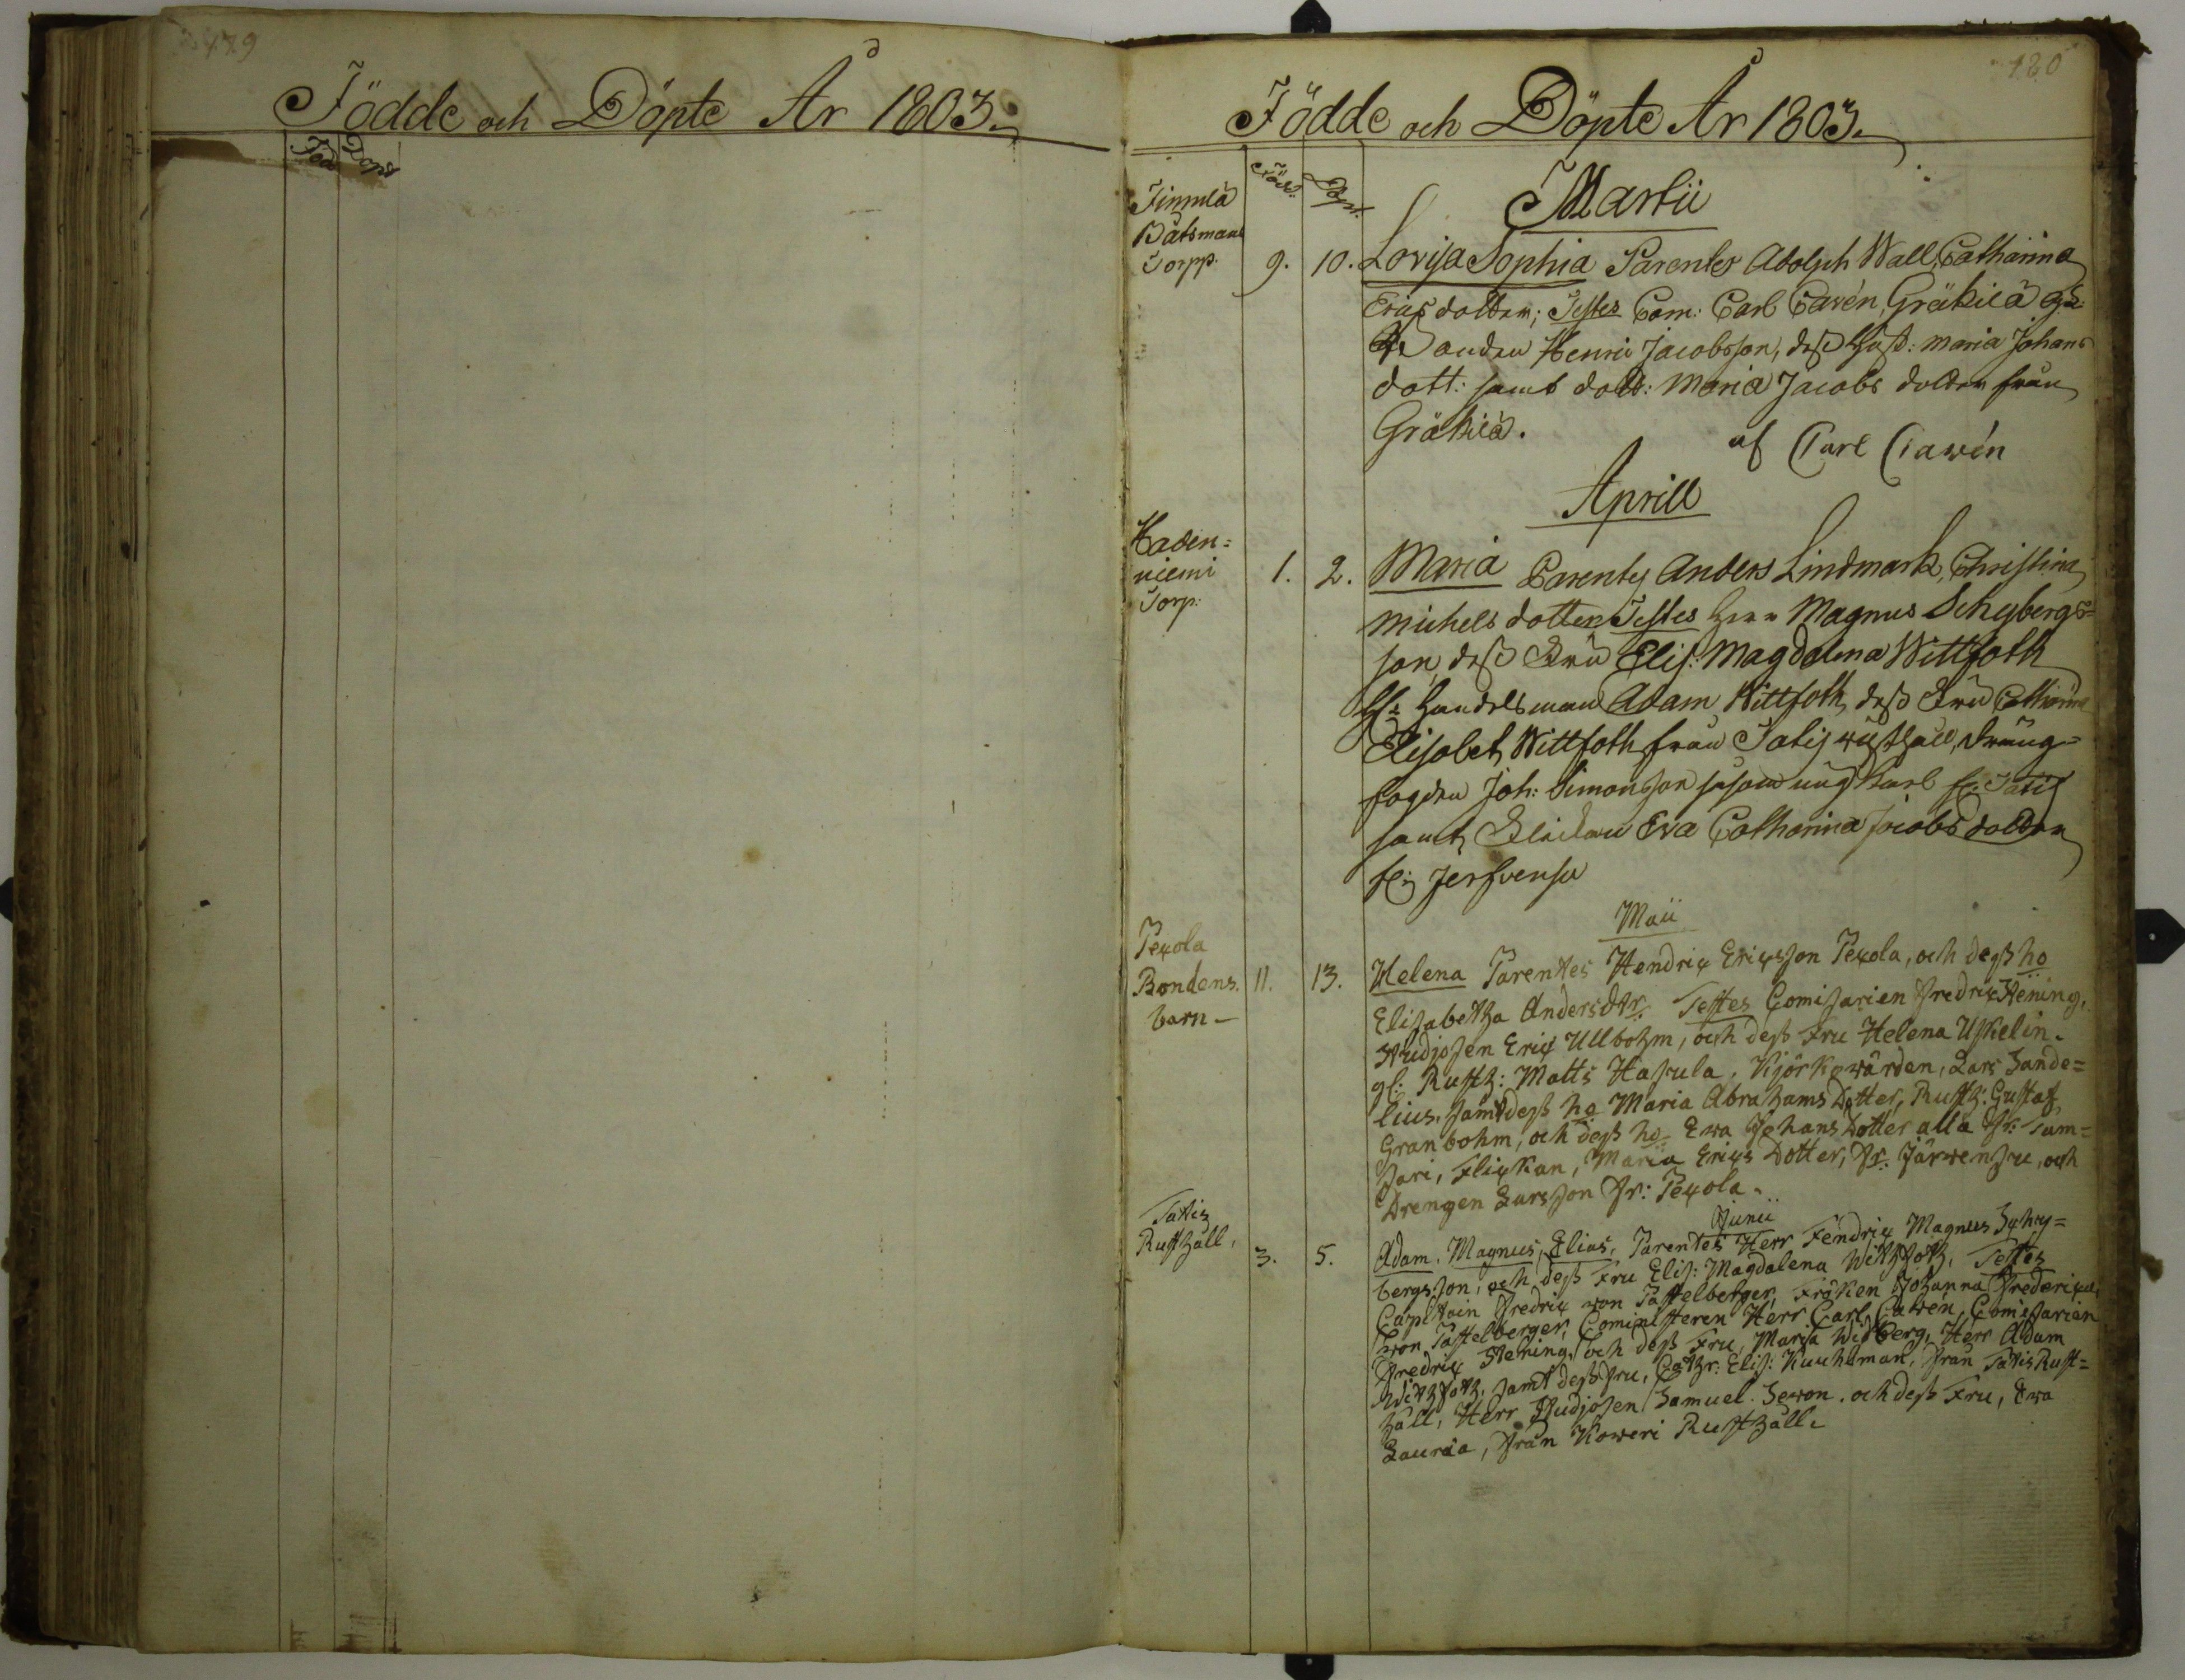 479
Födde och Döpte År 1803.
Föd Döpt
480
Födde och Döpte År 1803.
Född. Döpt.
Martii
Finnilä
Båtsmans
Torpp. 9. 10. Lovisa Sophia Parentes Adolph Wall, Catharina
Ericsdotter; Testes Com: Carl Cawén, Gräkilä
Henric Jacobsson, dess Hust: Maria Johans
dott: samt dott: Maria Jacobs dotter från
Gräkilä.
af Carl Cawén
Aprill
Haden=
niemi
Torp: 1. 2. Maria Parentes Anders Lindmark, Christina
Michels dotter Testes Herr Magnus Schybergs=
son, dess Fru Elis: Magdalena Wittfoth
Hr Handelsman Adam Wittfoth, dess Fru Catharina
Elisabet Wittfoth från Jatis rusthåll, dräng=
fogden Joh: Simonsson såsom ung karl fr: Tatis
samt Flickan Eva Catharina Jacobs dotter
fr: Jerfvensu
Maii
Pexola
Bondens
barn— 11. 13. Helena Parentes Hendrix Ericsson Pexola, och dess ho
Elisabetha Andersdtr. Testes Comisarien Fredrix Stening,
Studiosen Erix Ullbohm, och dess Fru Helena Uskelin.
gl: Rusth: Matts Hasula. Kjörkowärden, Lars Sande=
lius, samt dess ho Maria Abrahams Dotter, Rusth: Gustaf
Granbohm, och dess ho: Ewa Johans Dotter alla fr: Tam=
sari, Flickan, Maria Erics Dotter, fr. Järwensuu, och
Drengen Larsson fr: Pexola.
Junii
Tatis
Rusthåll, 3. 5. Adam, Magnus, Elias, Parentes Herr Fendrix Magnus Schy=
bergsson, och dess Fru Elis: Magdalena Withfoth, Testes
Capitain Fredrix von Passelberger, Fröken Johanna Fredrica
von Passelberger, Cominsteren Herr Carl Cawén, Comisarien
Fredrix Stening, och dess Fru, Maria Widberg, Herr Adam
Withfoth, samt dess fru, Cathr: Elis: Kuuhlman, från Tatis Rust=
håll, Herr Studiosen Samuel Sewon, och dess Fru, Ewa
Lauræa, från Koweri Rusthåll.